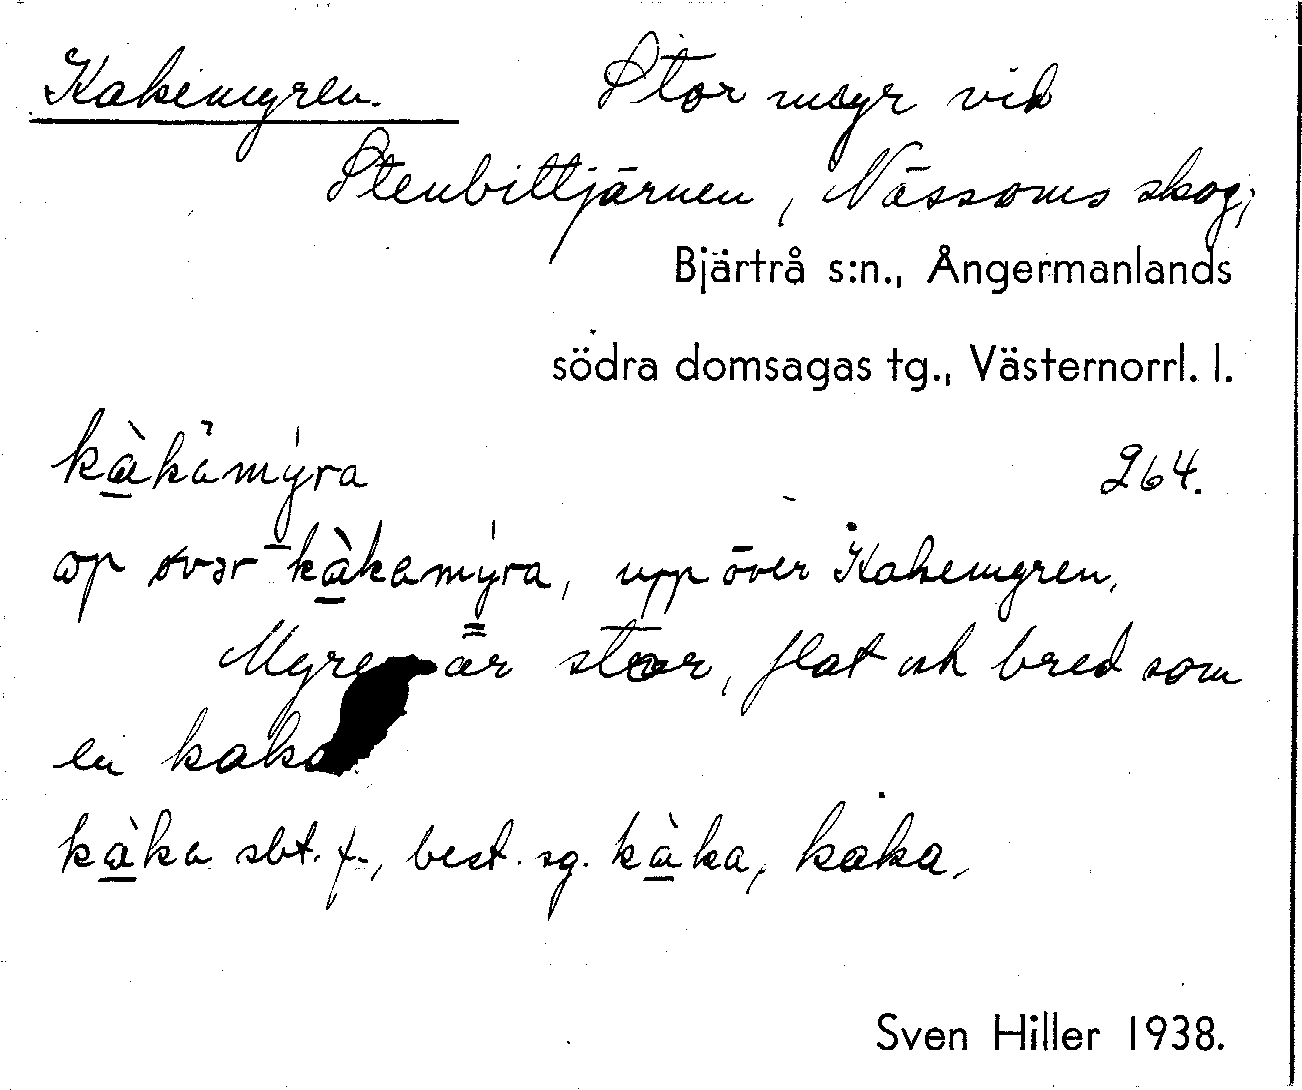 Kakemyren. Stor myr vid
Stenbittjärnen, Nässoms skog;
Bjärtrå s:n., Ångermanlands
södra domsagas tg., Västernorrl. l.
kàkamýra 264.
op øvər kàkamýra, upp över Kakemyren.
Myren är stor, flat och bred som
en kaka.
kàka sbt. f., best. sg. kàka, kaka.
Sven Hiller 1938.